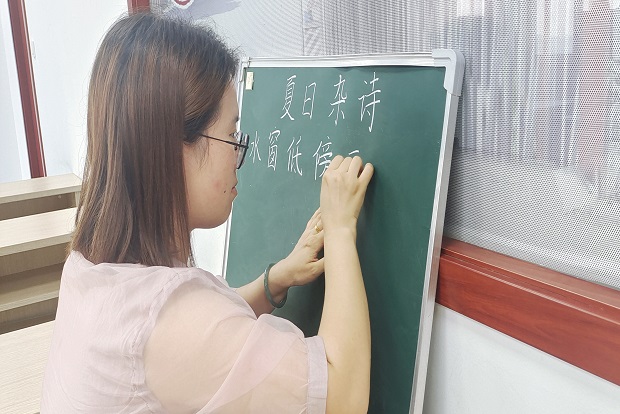 夏日杂诗
水窗低傍